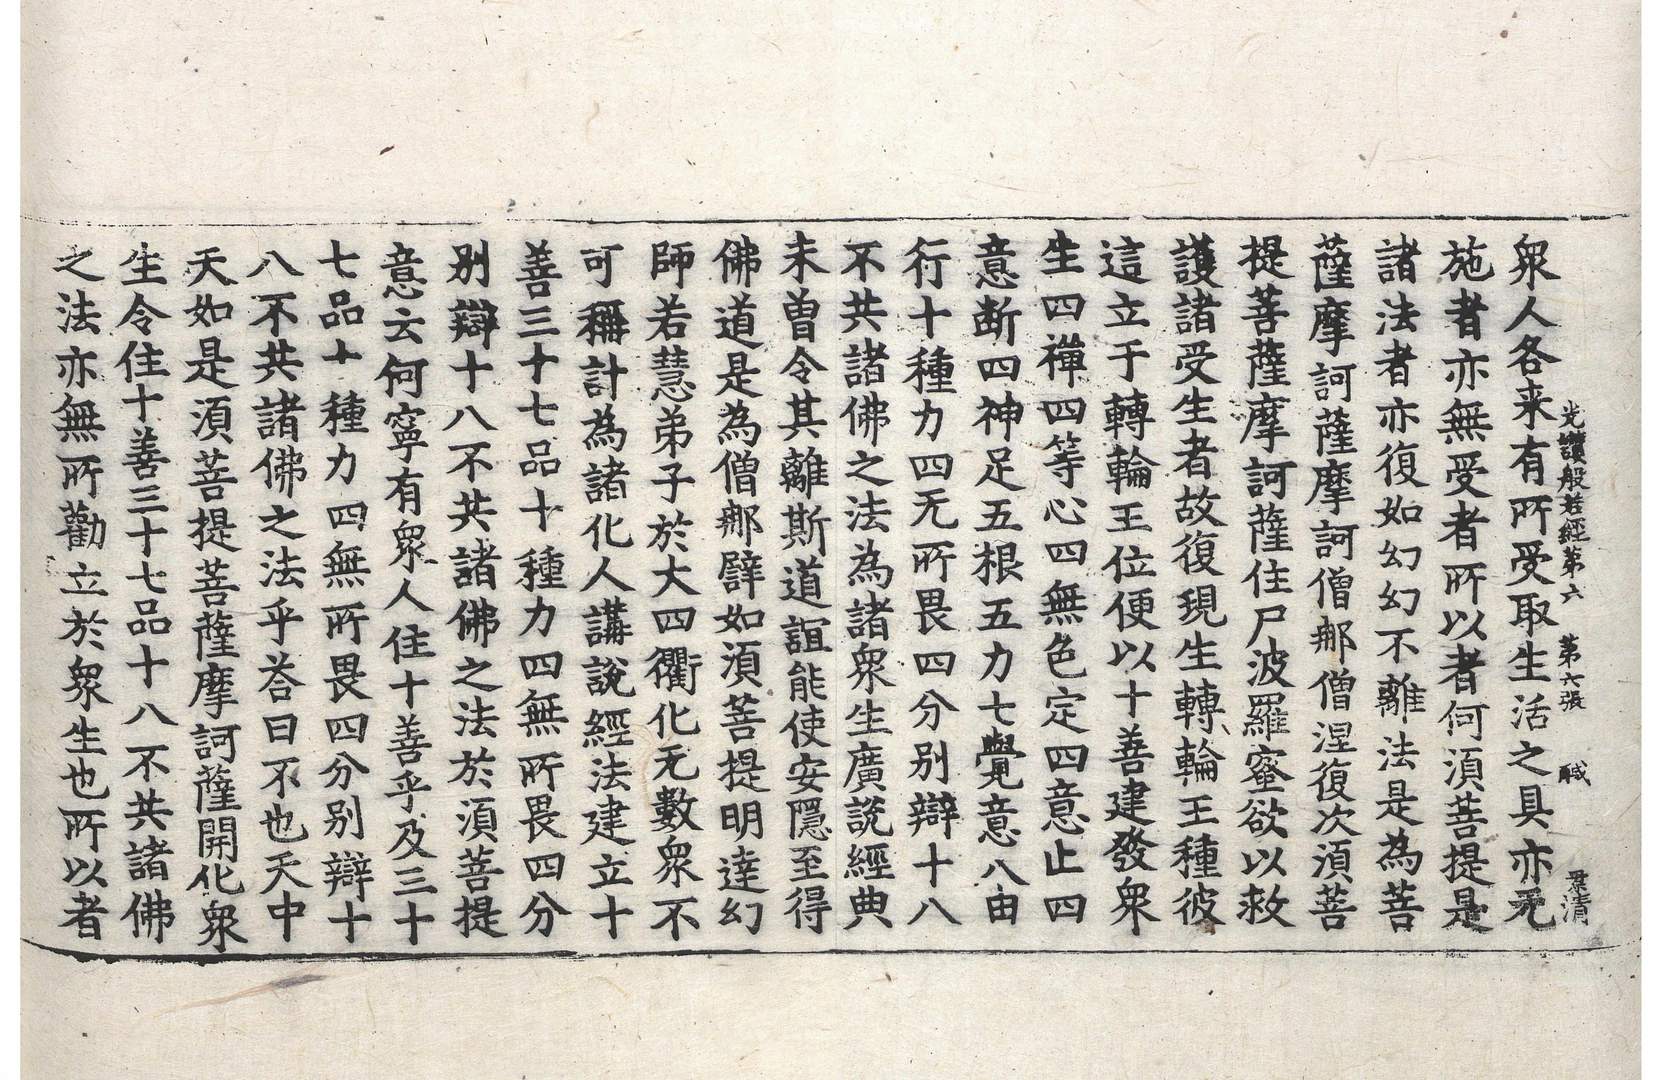 光讚般若經第六　第六張　醎　
衆人各来有所受取生活之具亦无
施者亦無受者所以者何湏菩提是
諸法者亦復如幻幻不離法是為菩
薩摩訶薩摩訶僧那僧涅復次湏菩
提菩薩摩訶薩住尸波羅蜜欲以救
護諸受生者故復現生轉輪王種彼
這立于轉輪王位便以十善建發衆
生四禪四等心四無色定四意止四
意断四神足五根五力七覺意八由
行十種力四无所畏四分别辯十八
不共諸佛之法為諸衆生廣說經典
未曽令其離斯道誼能使安隱至得
佛道是為僧那譬如湏菩提明達幻
師若慧弟子於大四衢化无數衆不
可稱計為諸化人講說經法建立十
善三十七品十種力四無所畏四分
别辯十八不共諸佛之法於湏菩提
意云何寧有衆人住十善乎及三十
七品十種力四無所畏四分别辯十
八不共諸佛之法乎荅曰不也天中
天如是湏菩提菩薩摩訶薩開化衆
生令住十善三十七品十八不共諸佛
之法亦無所勸立於衆生也所以者